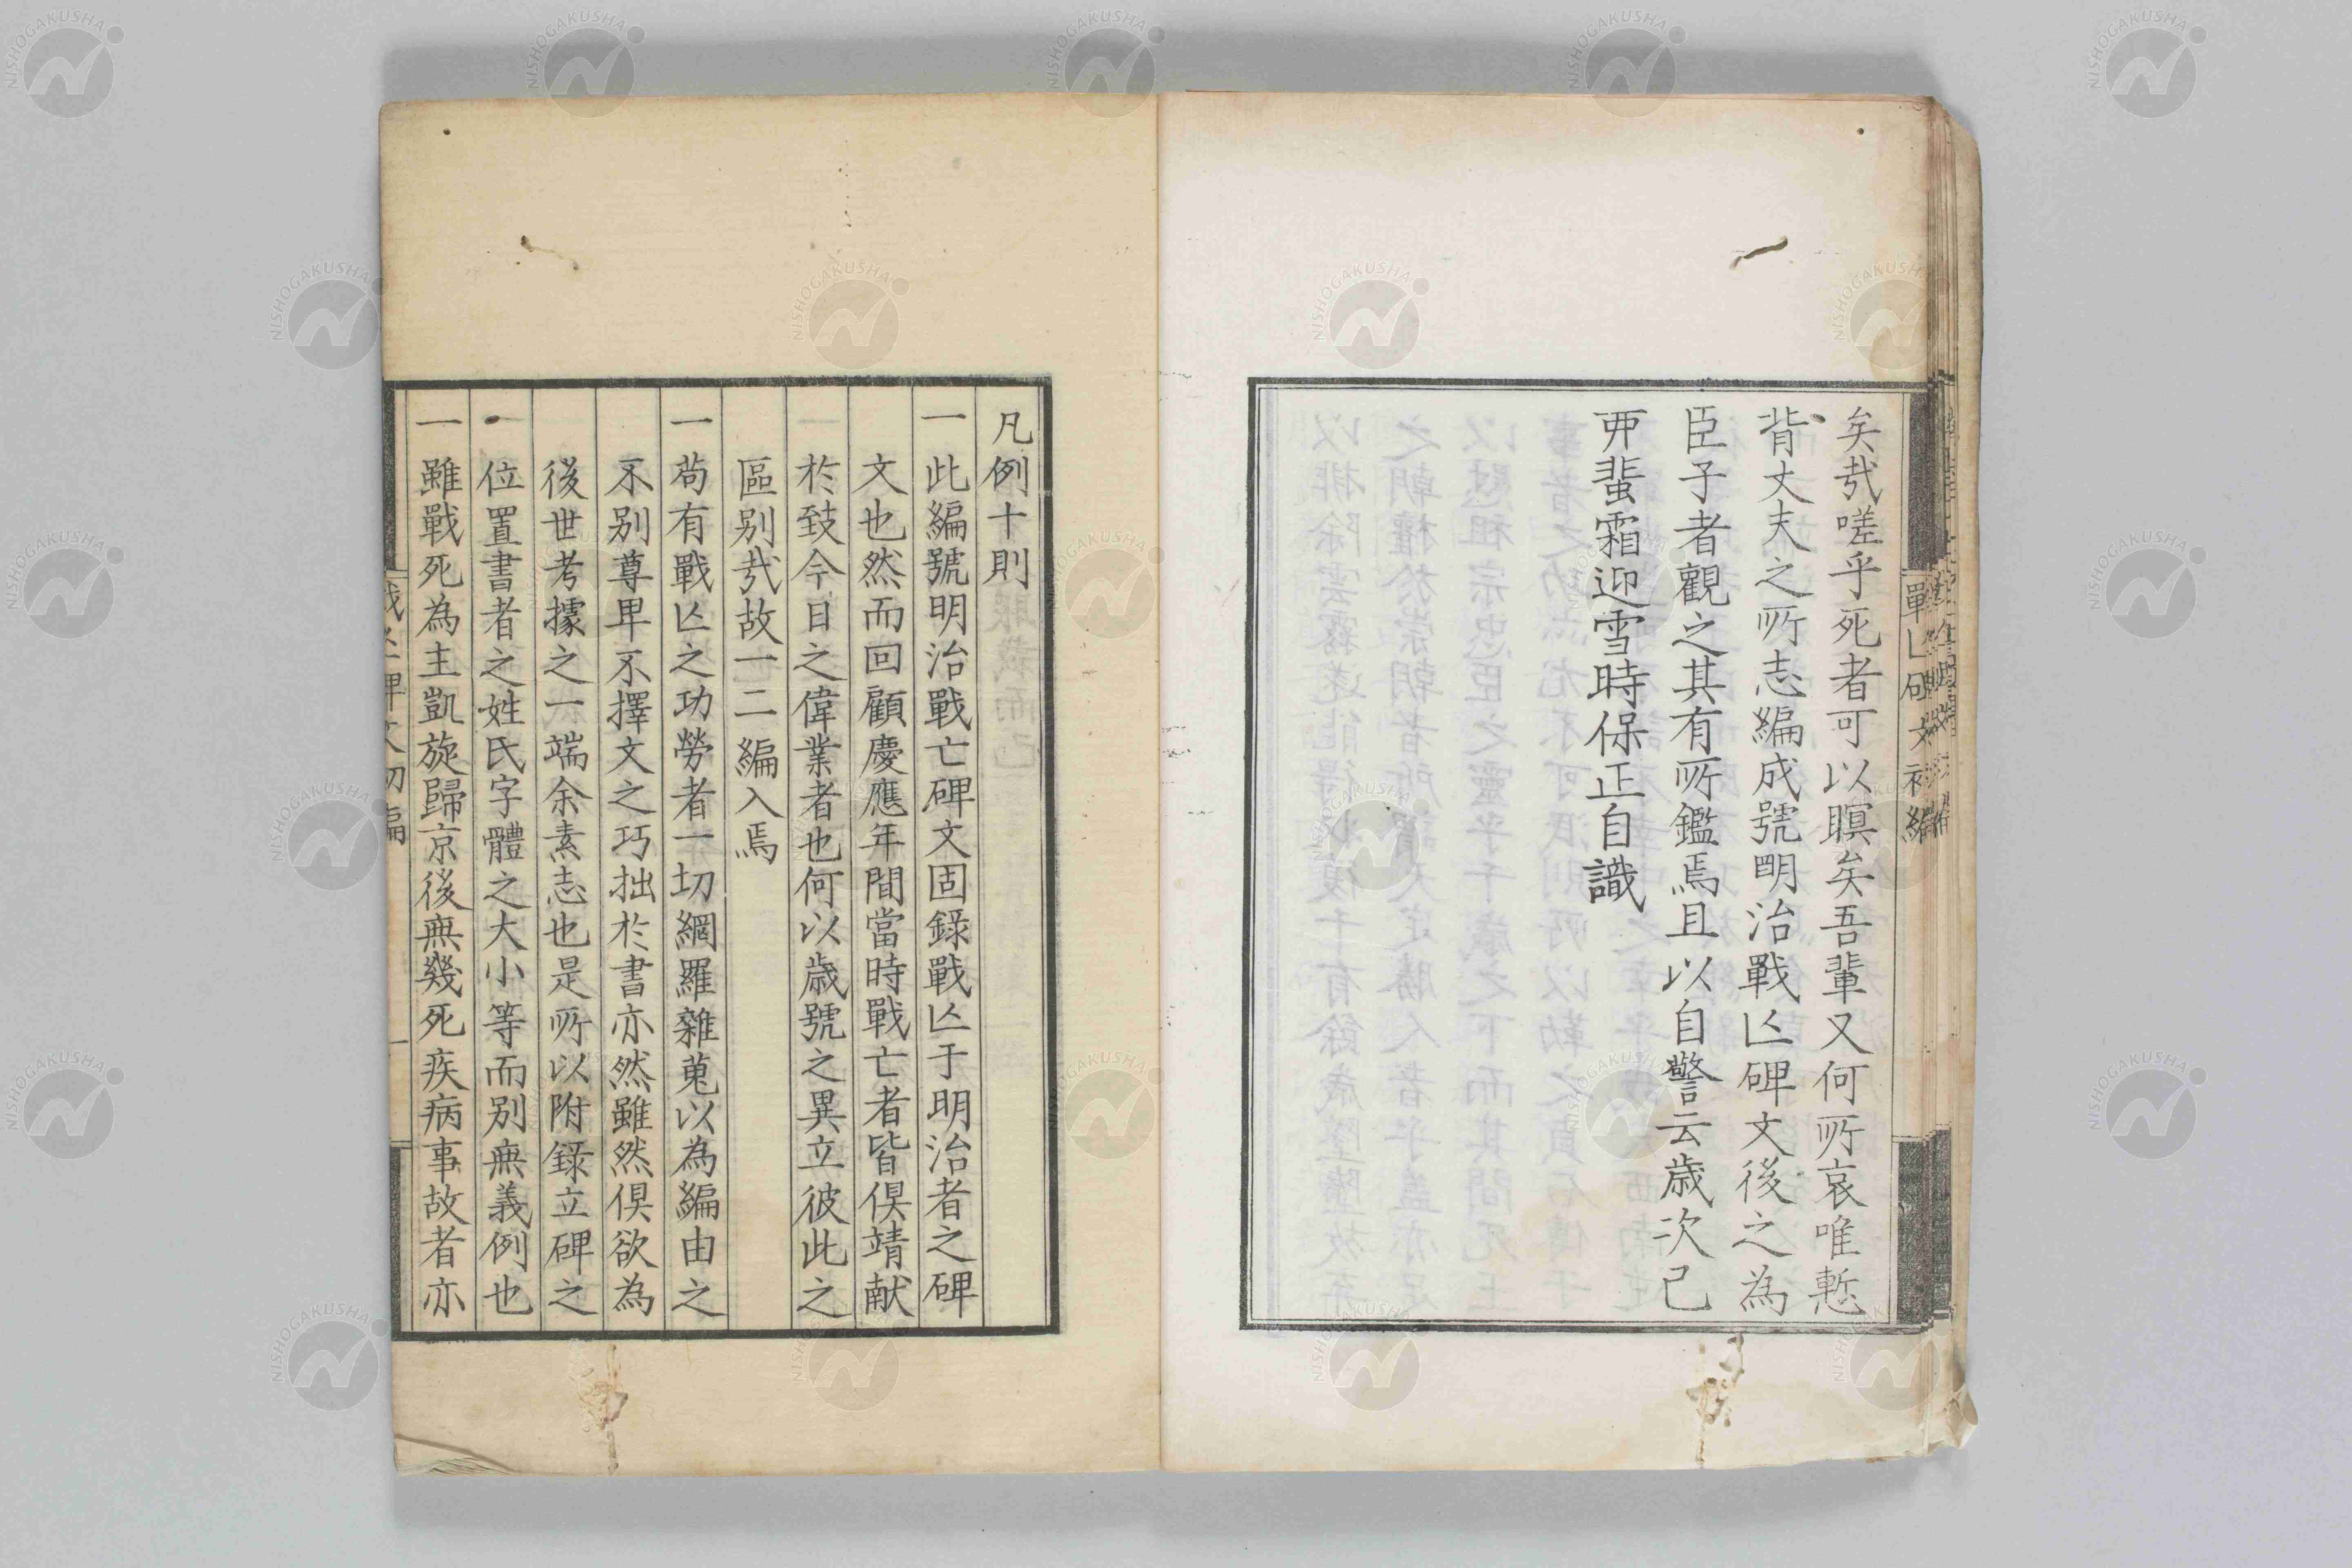 矣哉嗟乎死者可以瞑矣吾輩又何所哀唯慙
背丈夫之所志編成號明治戰亾碑文後之為
臣子者觀之其有所鑑焉且以自警云歳次己
丣蜚霜迎雪時保正自識
凡例十則
一此編號明治戰亡碑文固錄戰亾于明治者之碑
文也然而回顧慶應年間當時戰亡者皆倶靖献
於致今日之偉業者也何以歳號之異立彼此之
區别㢤故一二編入焉
一苟有戰亾之功勞者一切網羅雜蒐以為編由之
不别尊卑不擇文之巧拙於書亦然雖然倶欲為
後世考據之一端余素志也是所以附錄立碑之
位置書者之姓氏字體之大小等而别無義例也
一雖戰死為主凱旋歸京後無幾死疾病事故者亦
NISHOGAKUSHA